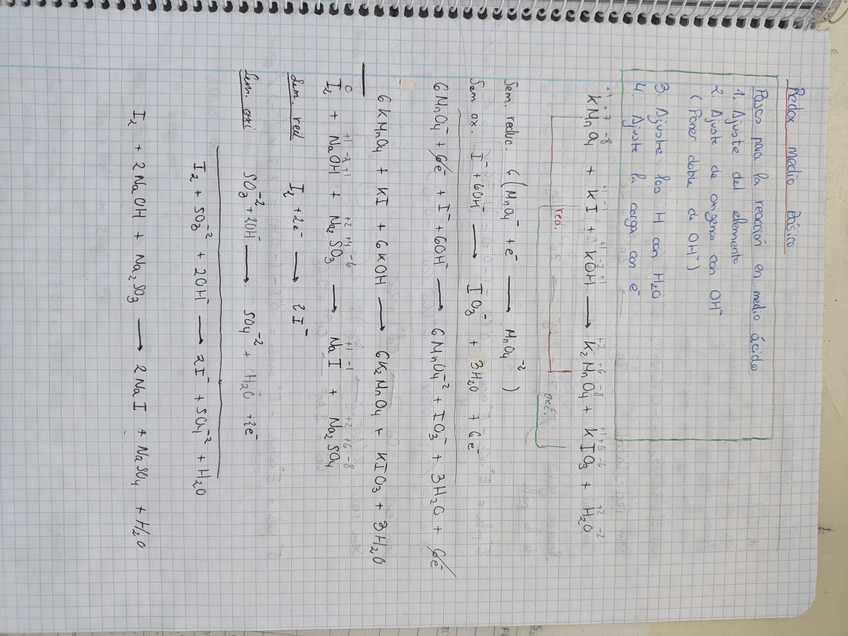 Redox medio básico
Pasos para la reacción en medio ácido
1. Ajuste del elemento
2. Ajuste de oxígeno con OH⁻
( Poner doble de OH⁻)
3. Ajuste los H con H₂O
4. Ajuste la carga con e⁻
+1 +7 -8 +1 -1 +1 -2 +1 +2 +6 -8 +1 +5 -6 +2 -2
KMnO₄ + KI + KOH ⟶ K₂MnO₄ + KIO₃ + H₂O
red.
oxi.
Sem. reduc. 6 (MnO₄⁻ + e⁻ ⟶ MnO₄⁻² )
Sem ox. I⁻ + 6OH⁻ ⟶ IO₃⁻ + 3H₂O + 6e⁻
6MnO₄⁻ + 6e⁻ + I⁻ + 6OH⁻ ⟶ 6MnO₄⁻² + IO₃⁻ + 3H₂O + 6e⁻
6KMnO₄ + KI + 6KOH ⟶ 6K₂MnO₄ + KIO₃ + 3H₂O
0 +1 -2 +1 +2 +4 -6 +1 -1 +2 +6 -8
I₂ + NaOH + Na₂SO₃ ⟶ NaI + Na₂SO₄
Sem. red I₂ + 2e⁻ ⟶ 2I⁻
Sem. oxi SO₃⁻² + 2OH⁻ ⟶ SO₄⁻² + H₂O + 2e⁻
I₂ + SO₃⁻² + 2OH⁻ ⟶ 2I⁻ + SO₄⁻² + H₂O
I₂ + 2NaOH + Na₂SO₃ ⟶ 2NaI + NaSO₄ + H₂O